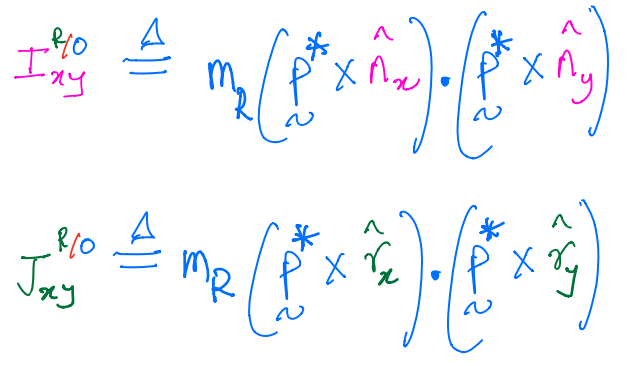 I_{xy}^{R/O} ≜ m_R (p̰* × n̂_x) · (p̰* × n̂_y)
J_{xy}^{R/O} ≜ m_R (p̰* × r̂_x) · (p̰* × r̂_y)